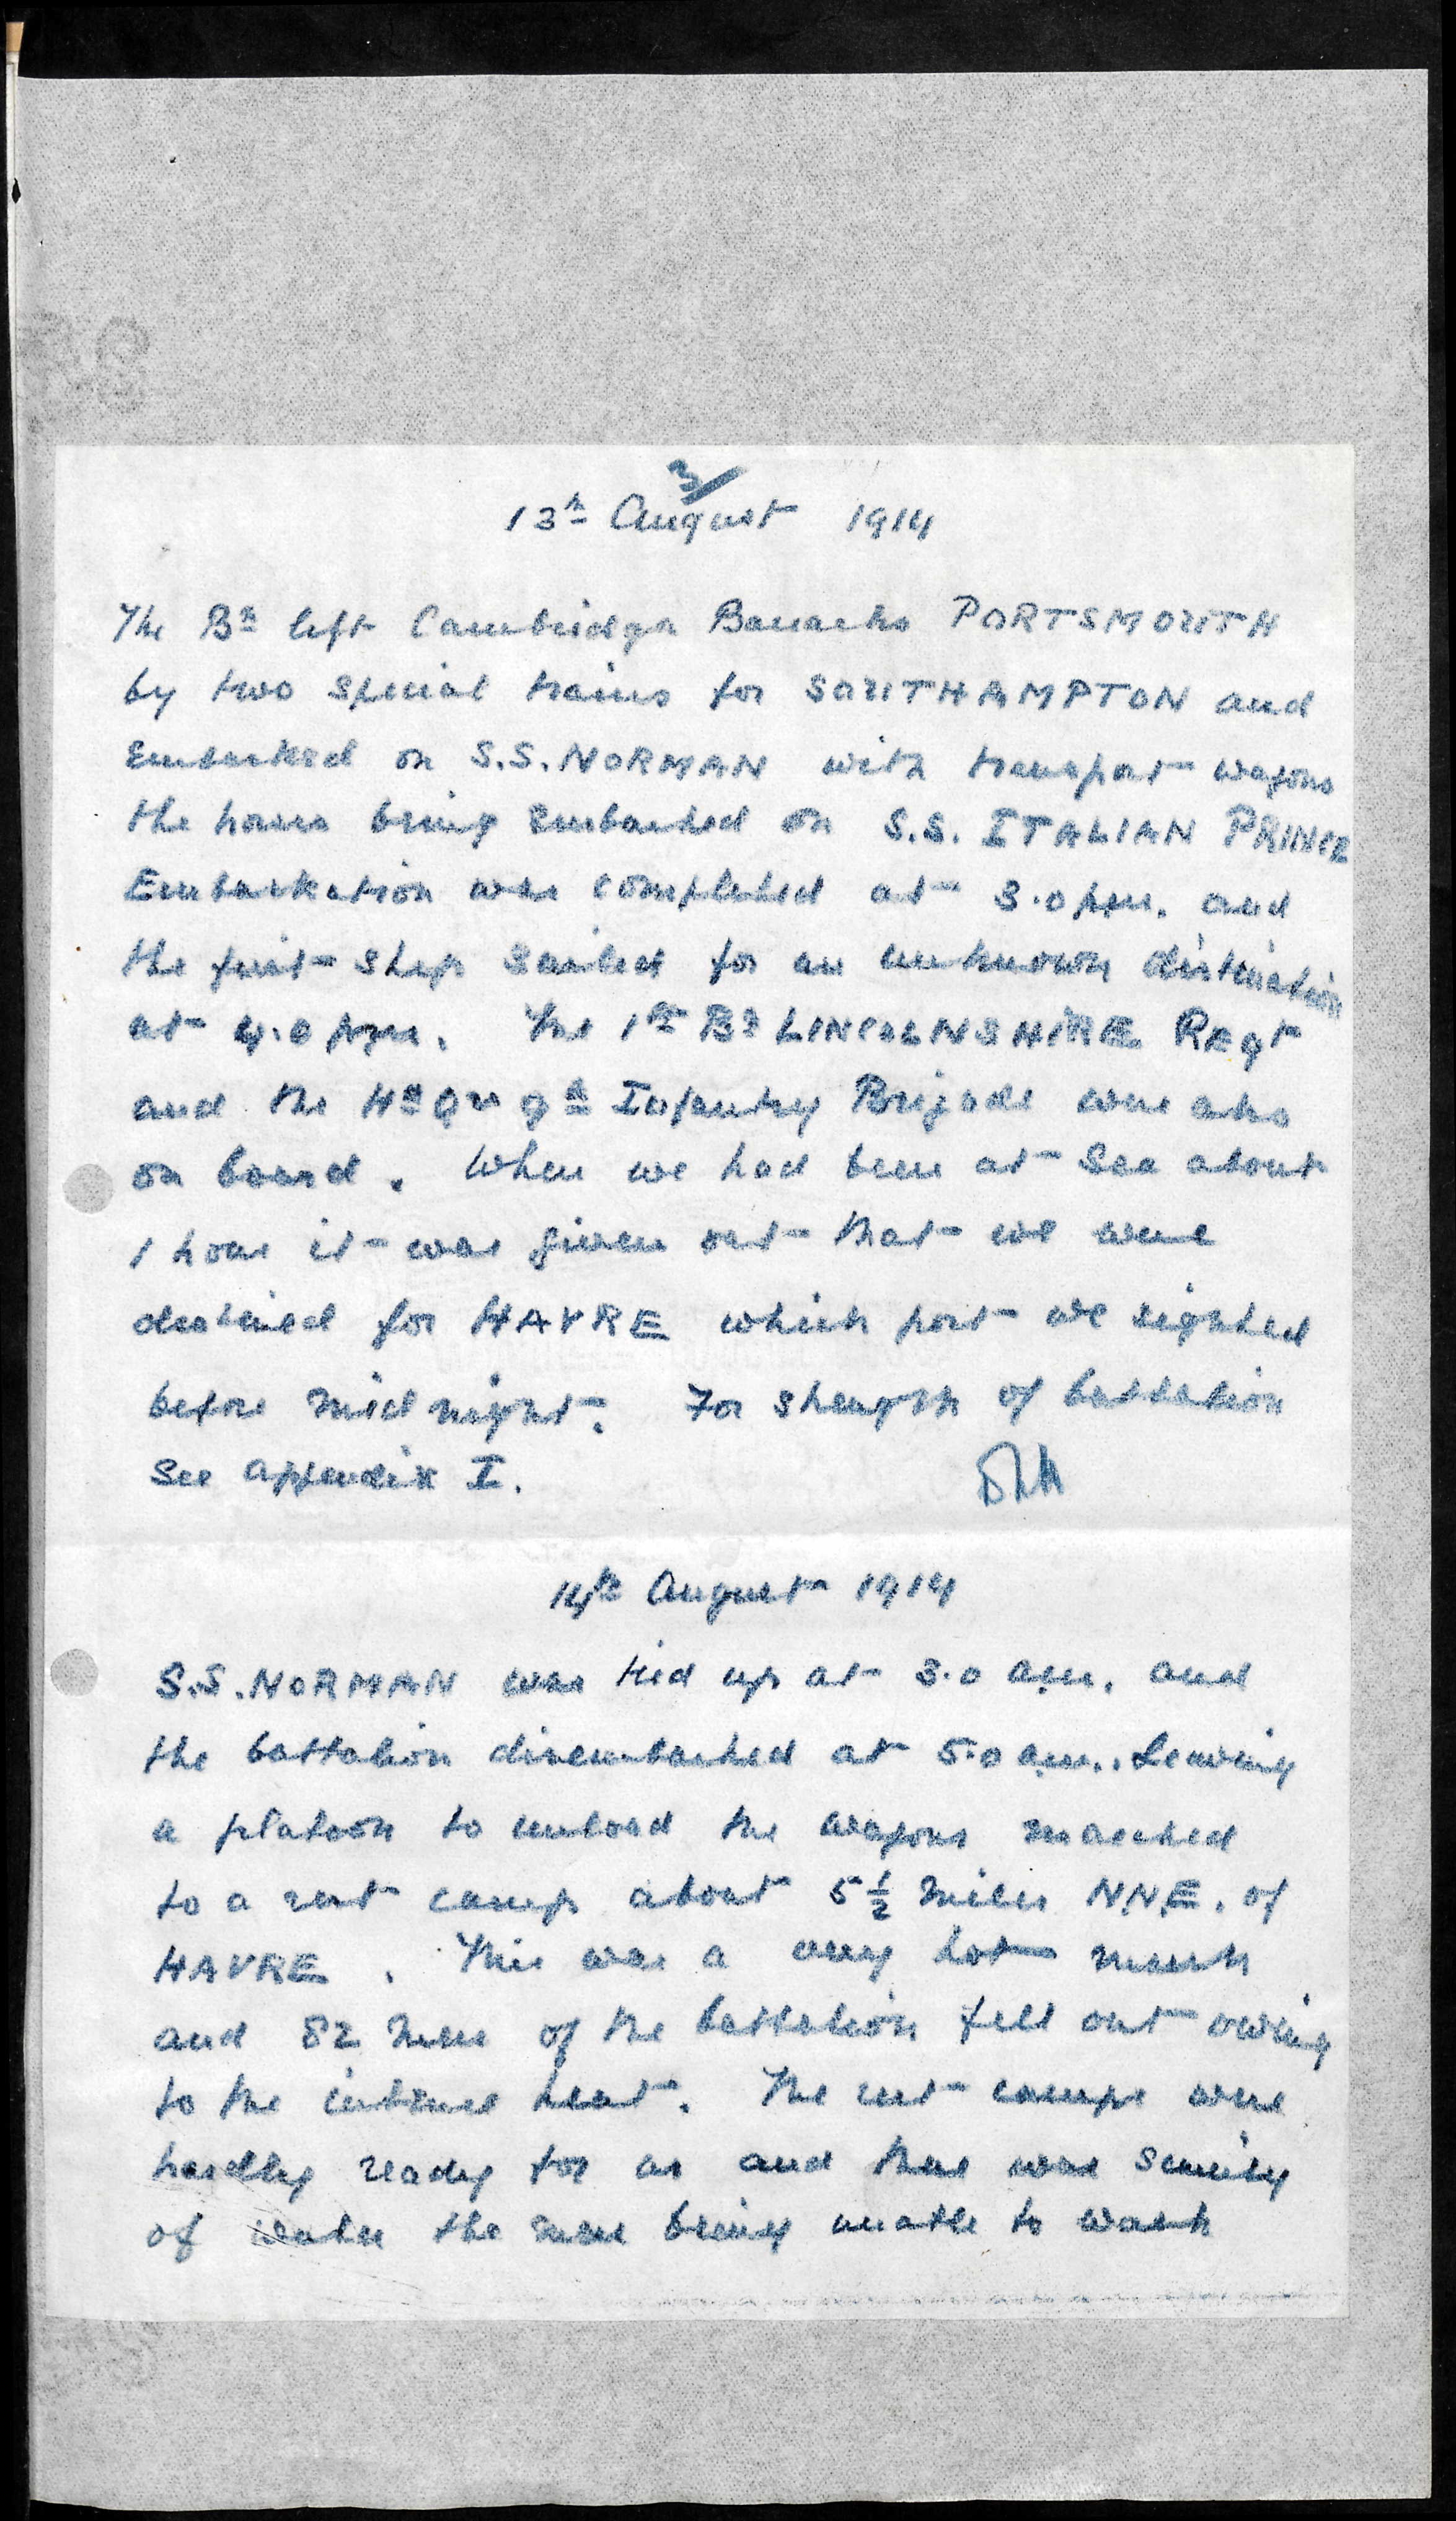 3
13th August 1914
The Bn left Cambridge Barracks PORTSMOUTH
by two special trains for SOUTHAMPTON and
embarked on S.S. NORMAN with transport wagons
the horses being embarked on S.S. ITALIAN PRINCE
Embarkation was completed at 3.0 p.m. and
the first ship sailed for an unknown destination
at 4.0 p.m. The 1st Bn LINCOLNSHIRE REgt
and the Hd Qrs 9th Infantry Brigade were also
on board. When we had been at sea about
1 hour it was given out that we were
destined for HAVRE which port we sighted
before midnight. For strength of battalion
see appendix I.
14th August 1914
S.S. NORMAN was tied up at 3.0 a.m. and
the battalion disembarked at 5.0 a.m.. Leaving
a platoon to unload the wagons marched
to a rest camp about 5½ miles N.N.E. of
HAVRE. This was a very hot march
and 82 men of the battalion fell out owing
to the intense heat. The rest camps were
hardly ready for us and there was scarcity
of water the men being unable to wash